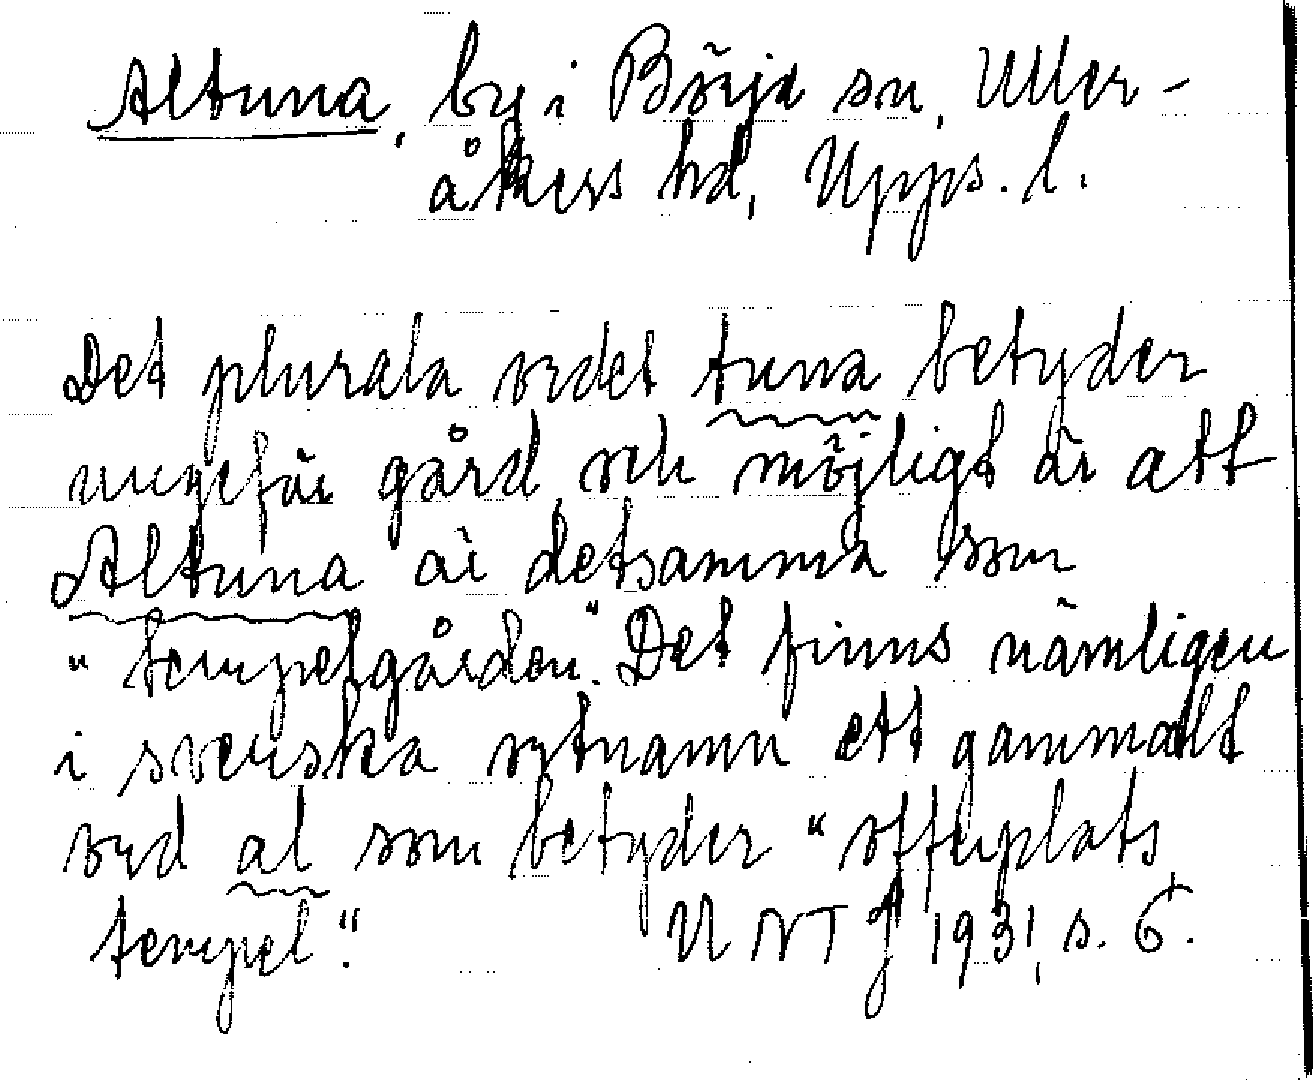 Altuna, by i Börje sn, Uller-
åkers hd, Upps. l.
Det plurala ordet tuna betyder
ungefär gård, och möjligt är att
Altuna är detsamma som
"tempelgården". Det finns nämligen
i svenska ortnamn ett gammalt
ord al som betyder "offerplats,
tempel". UNT J 1931, s. 6.